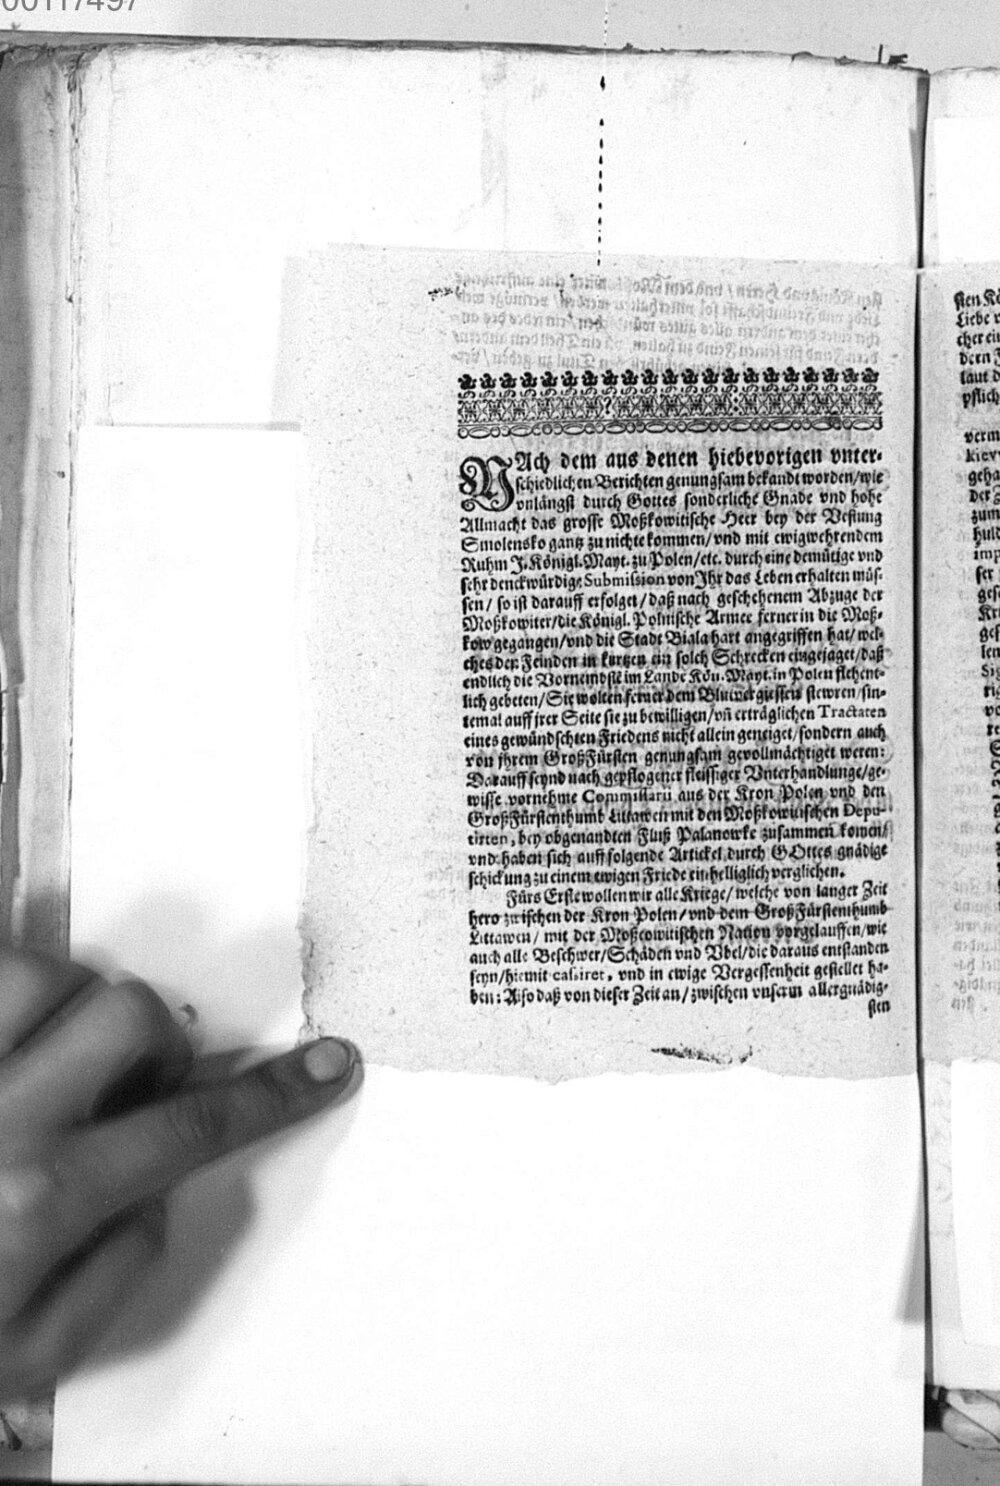 00117497
NAch dem aus denen hiebevorigen vnter-
schiedlichen Berichten genungsam bekandt worden/wie
vnlängst durch Gottes sonderliche Gnade vnd hohe
Allmacht das grosse Moßkowitische Heer bey der Vestung
Smolensko gantz zu nichte kommen/vnd mit ewigwehrendem
Ruhm J. Königl. Mayt. zu Polen/etc. durch eine demütige vnd
sehr denckwürdige Submission von Jhr das Leben erhalten müs-
sen/ so ist darauff erfolget/daß nach geschehenem Abzuge der
Moßkowiter/die Königl. Polnische Armee ferner in die Moß-
kow gegangen/vnd die Stadt Biala hart angegriffen hat/wel-
ches den Feinden in kurtzen ein solch Schrecken eingejaget/daß
endlich die Vornembste im Lande Kön. Mayt. in Polen flehent-
lich gebeten/Sie wolten ferner dem Blutvergiessen stewren/sin-
temal auff jrer Seite sie zu bewilligen/vñ erträglichen Tractaten
eines gewündschten Friedens nicht allein geneiget/sondern auch
von jhrem GroßFürsten genungsam gevollmächtiget weren:
Darauff seynd nach gepflogener fleissiger Vnterhandlunge/ge-
wisse vornehme Commissarii aus der Kron Polen vnd den
GroßFürstenthumb Littawen mit den Moßkowitischen Depu-
tirten, bey obgenandten Fluß Palanowke zusammen kom̃en/
vnd haben sich auff folgende Artickel durch GOttes gnädige
schickung zu einem ewigen Friede einhelliglich verglichen.
Fürs Erste wollen wir alle Kriege/welche von langer Zeit
hero zwischen der Kron Polen/vnd dem GroßFürstenthumb
Littawen/ mit der Moßcowitischen Nation vorgelauffen/wie
auch alle Beschwer/Schäden vnd Vbel/die daraus entstanden
seyn/hiemit cassiret, vnd in ewige Vergessenheit gestellet ha-
ben: Also daß von dieser Zeit an/zwischen vnserm allergnädig-
sten
sten Kö
Liebe
cher ei
dern
laut d
pflich
verm
kiev
geha
der
zum
huld
imp
ser
gesc